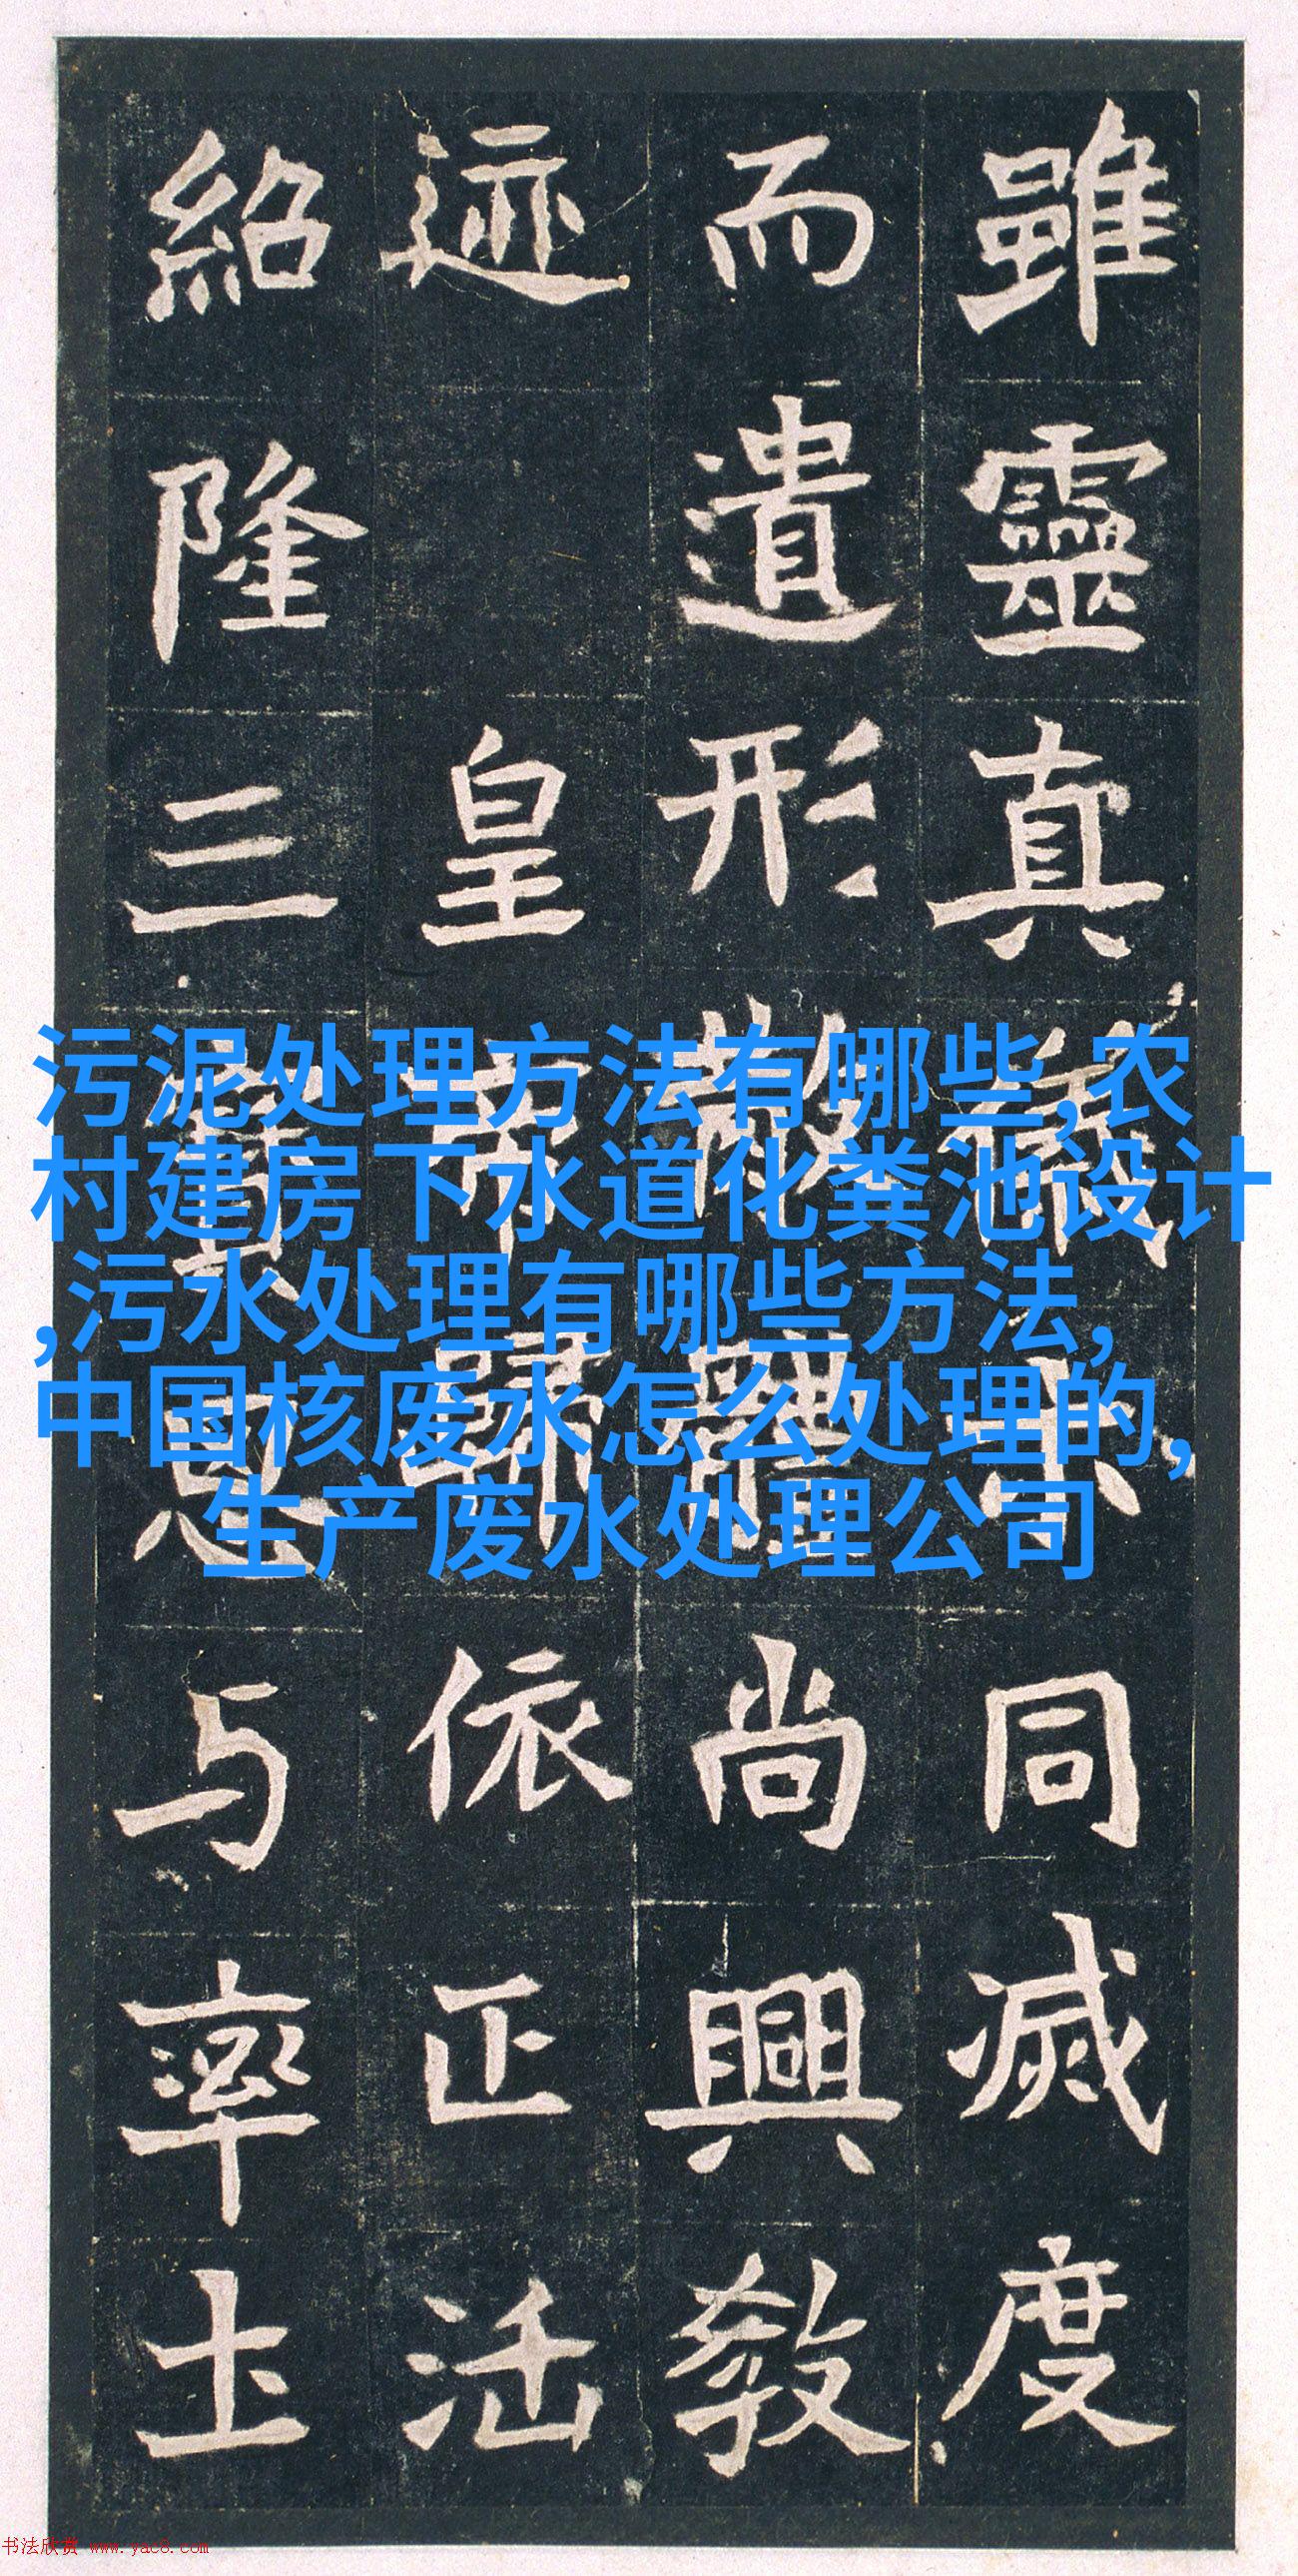 雖靈真同滅度
而遺形散體尚興教
迹皇帝歸依正法
紹隆三寶思与率土
污泥处理方法有哪些,农
村建房下水道化粪池设计
,污水处理有哪些方法,
中国核废水怎么处理的,
生产废水处理公司
书法欣赏 www.yac8.com